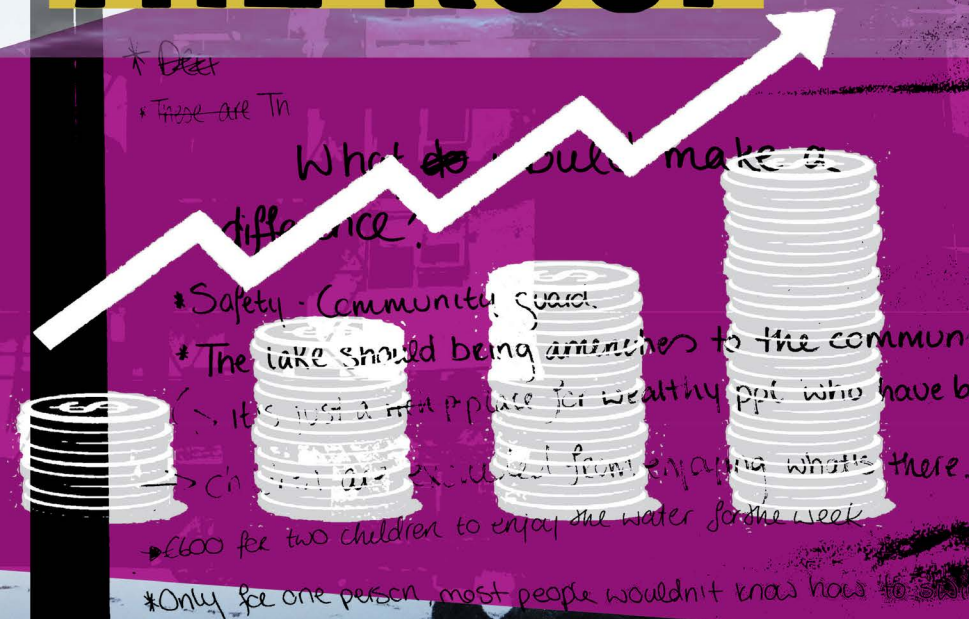 THE ROOF
* Deer
* These are Th
What do would make a
difference?
*Safety - Community guard.
*The lake should being amenities to the commun
It's just a place for wealthy ppl who have b
are excluded from enjoying what's there.
£600 for two children to enjoy the water for the week
*Only for one person most people wouldn't know how to